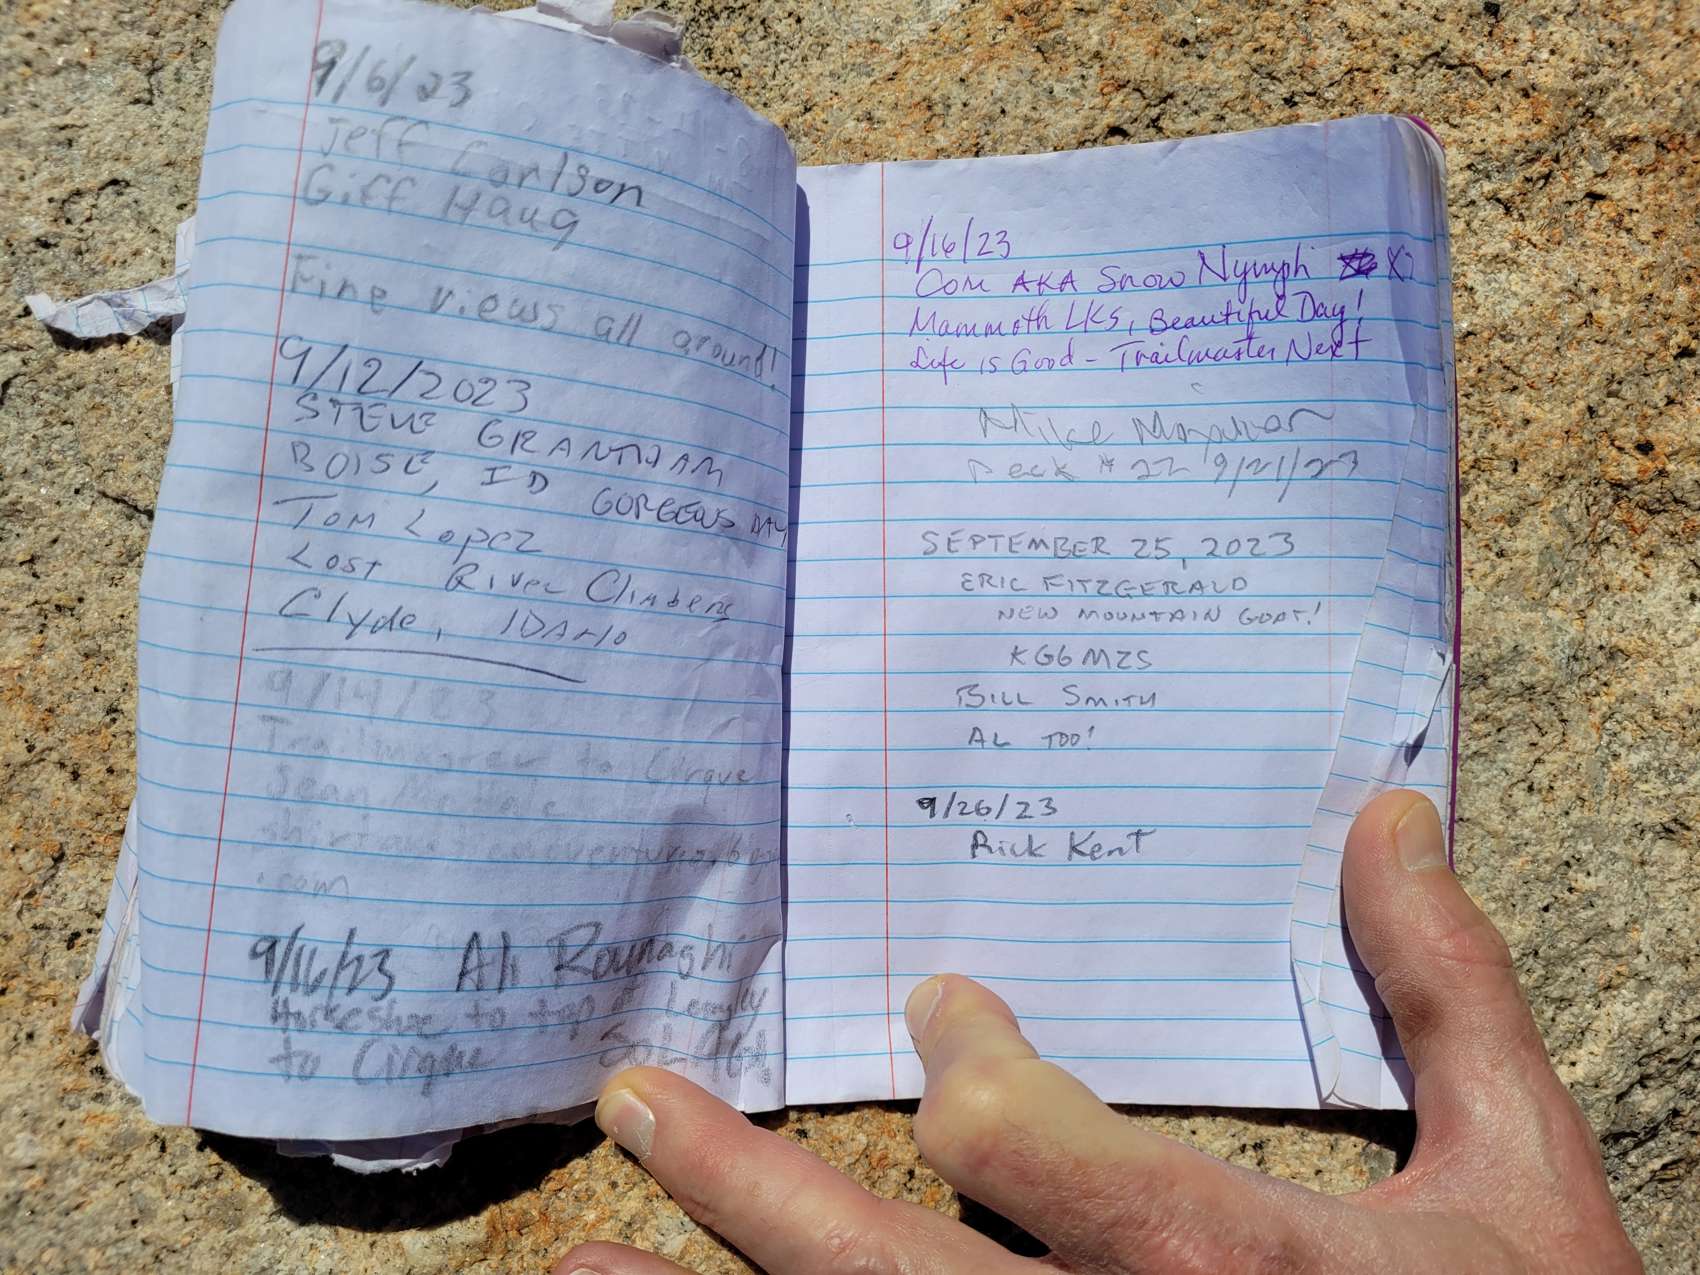 9/6/23
Jeff Carlson
Giff Haug
Fine views all around!
9/12/2023
STEVE GRANTHAM
BOISE, ID GORGEOUS DAY
Tom Lopez
Lost River Climbers
Clyde, IDAHO
9/14/23
Trailmaster to Cirque
Sean
.com
9/16/23 Ali Rounaghi
Horseshoe to top of Langley
to Cirque
9/16/23
AKA Snow Nymph
Mammoth LKS, Beautiful Day!
Life is Good - Trailmaster Next
Mike
Peak # 22 9/21/23
SEPTEMBER 25, 2023
ERIC FITZGERALD
NEW MOUNTAIN GOAT!
KG6MZS
BILL SMITH
AL TOO!
9/26/23
Rick Kent